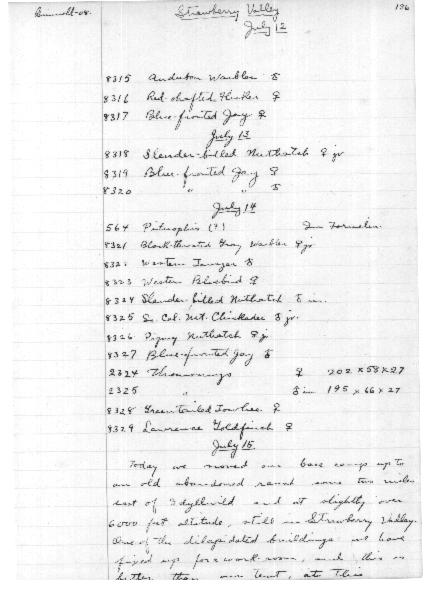 Grinnell-08.
Strawberry Valley
136
July 12
8315 Audubon Warbler ♂
8316 Red-shafted Flicker ♀
8317 Blue-fronted Jay ♀
July 13
8318 Slender-billed Nuthatch ♀ jr
8319 Blue-fronted Jay ♀
8320 " " ♂
July 14
564 Pituophis (?) In Formalin.
8321 Black-throated Gray Warbler ♀ jr
832 Western Tanager ♂
8323 Western Bluebird ♀
8324 Slender-billed Nuthatch ♂ im.
8325 So. Cal. Mt. Chickadee ♂ jr.
8326 Pigmy Nuthatch ♀ jr
8327 Blue-fronted Jay ♂
2324 Thomomys ♀ 202 x 58 x 27
2325 " ♂ im 195 x 66 x 27
8328 Green-tailed Towhee ♀
8329 Lawrence Goldfinch ♀
July 15.
Today we moved our base camp up to
an old abandoned ranch some two miles
east of Idyllwild and at slightly over
6000 feet altitude, still in Strawberry Valley.
One of the dilapidated buildings we have
fixed up for a work-room, and this is
better than our tent, at this